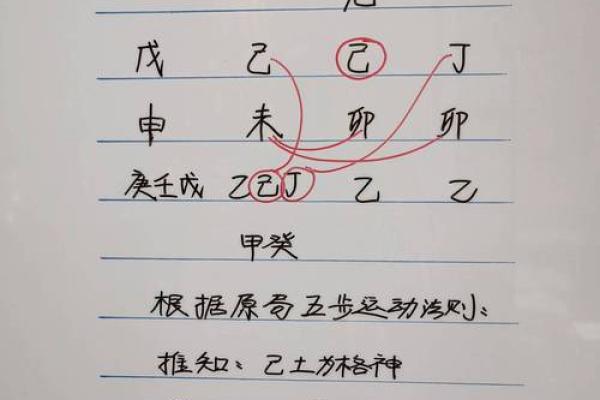 戊 己 己 丁
申 未 卯 卯
庚壬戊 乙己丁 乙 乙
甲癸
根据原局五步运动法则：
推知：己土为格神